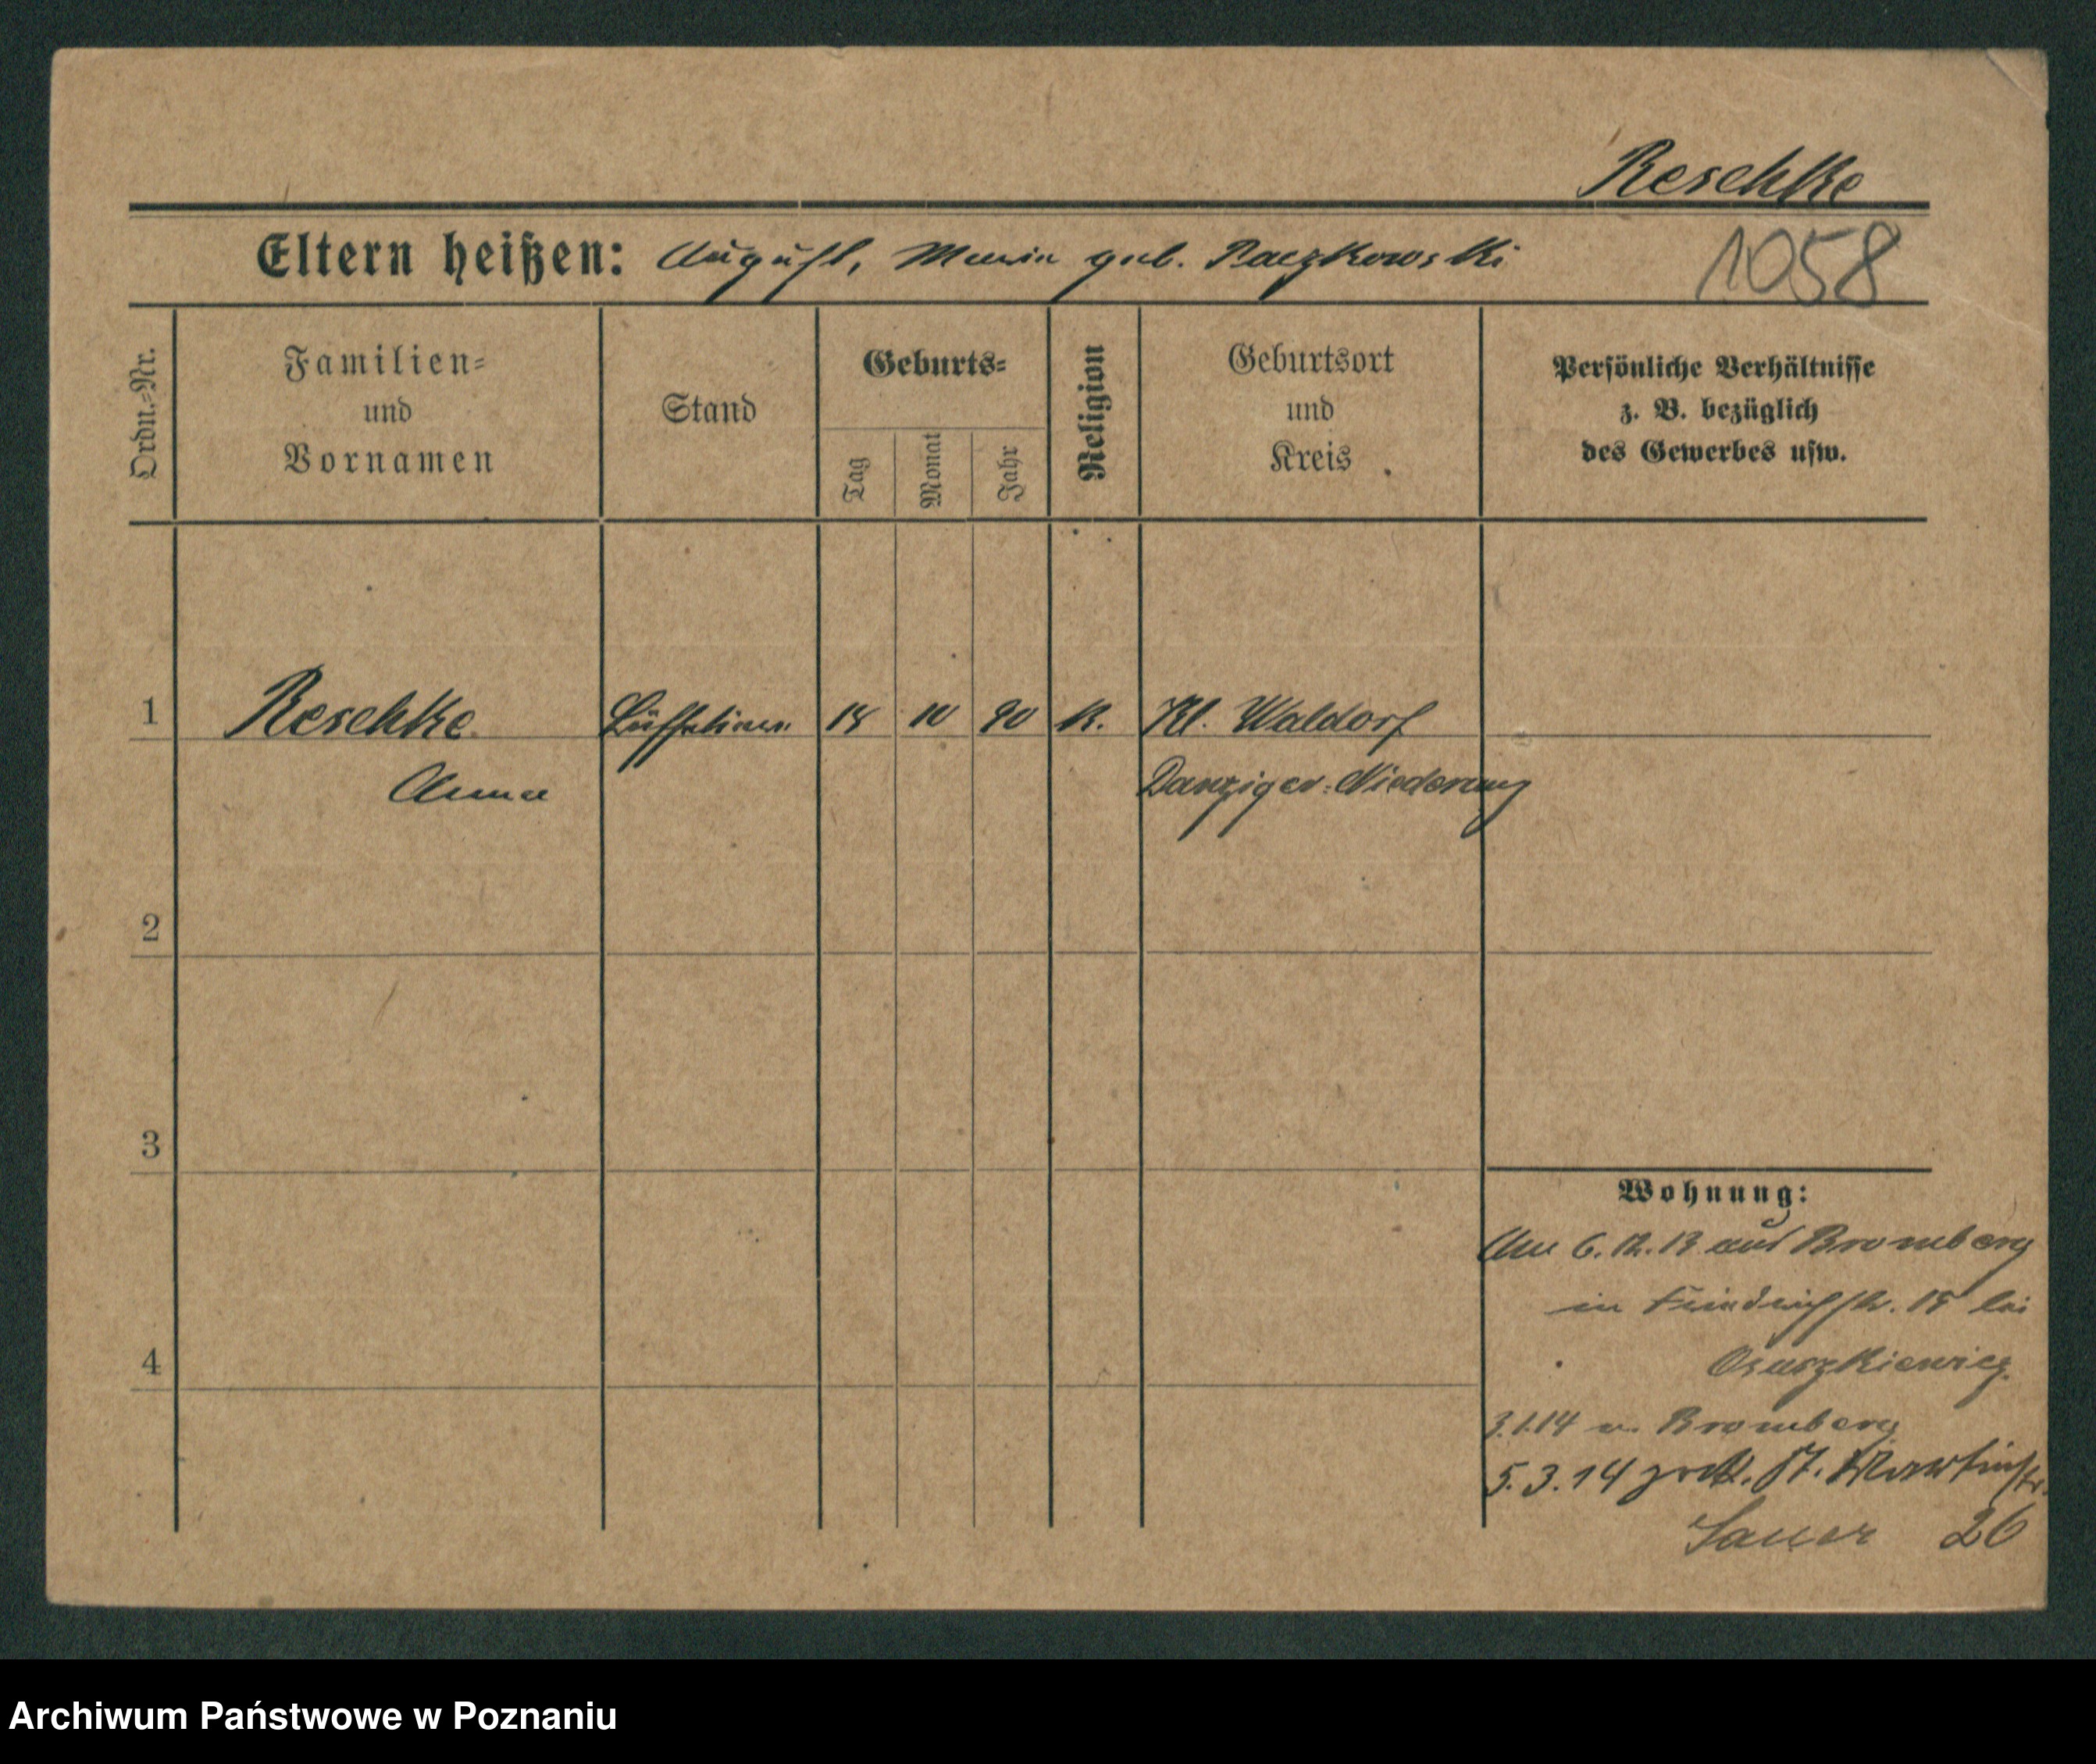 Reschke
Eltern heißen: August, Maria geb. Raczkowski
1058
Ordn.-Nr.
Familien-
und
Vornamen
Stand
Geburts-
Tag
Monat
Jahr
Religion
Geburtsort
und
Kreis
Persönliche Verhältnisse
z. B. bezüglich
des Gewerbes usw.
1 Reschke Büffetiere 18 10 90 K. Kl. Waldorf
Anna Danziger-Niederung
2
3
4
Wohnung:
Am 6.12.13 aus Bromberg
in Friedrichstr. 18 bei
3.1.14 n. Bromberg
5.3.14 zrck. St. Martinstr.
Sauer 26
Archiwum Państwowe w Poznaniu